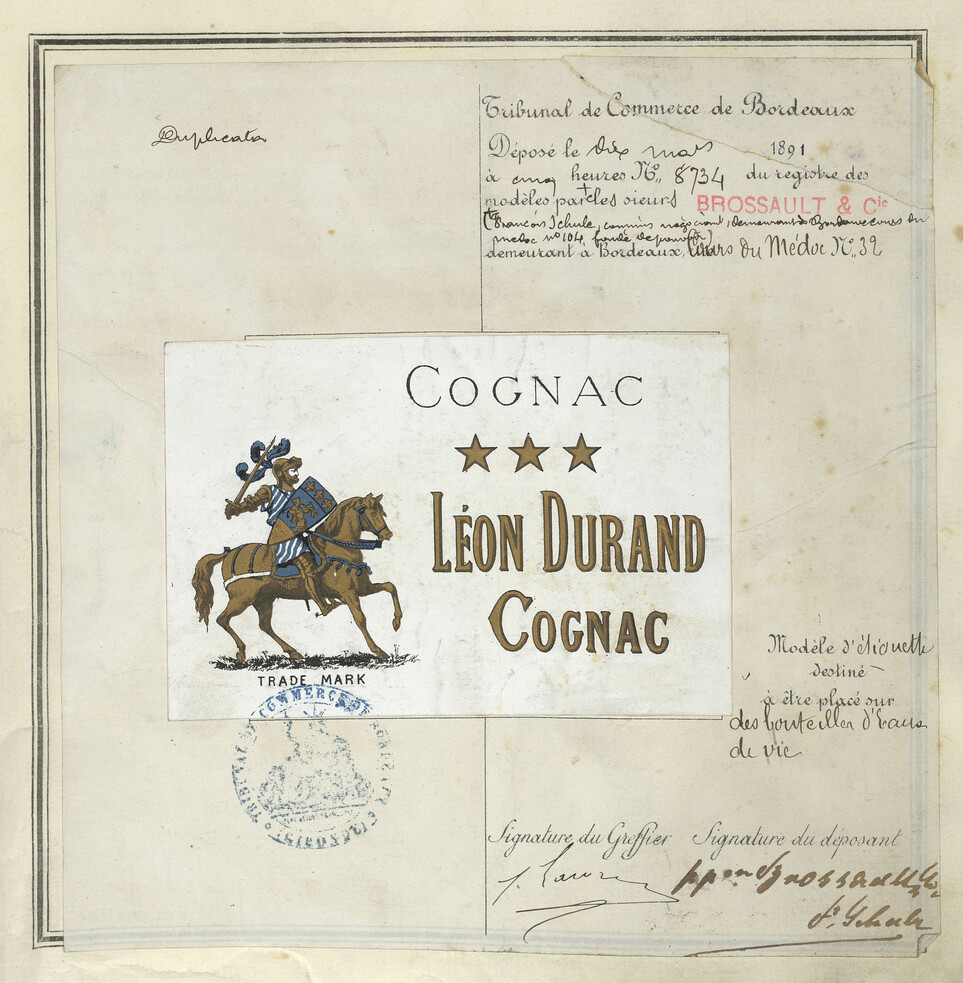 Duplicata
Tribunal de Commerce de Bordeaux
Déposé le dix mars 1891
à cinq heures No 8734 du registre des
modèles par les sieurs BROSSAULT & Cie
(François Schule, commis négociant, demeurant à Bordeaux cours du
Médoc no 104, fondé de pouvoir)
demeurant à Bordeaux, Cours du Médoc No 32
COGNAC
LÉON DURAND
COGNAC
TRADE MARK
TRIBUNAL DE COMMERCE DE BORDEAUX
Modèle d'étiquette
destiné
à être placé sur
des bouteilles d'Eaux
de vie
Signature du Greffier Signature du déposant